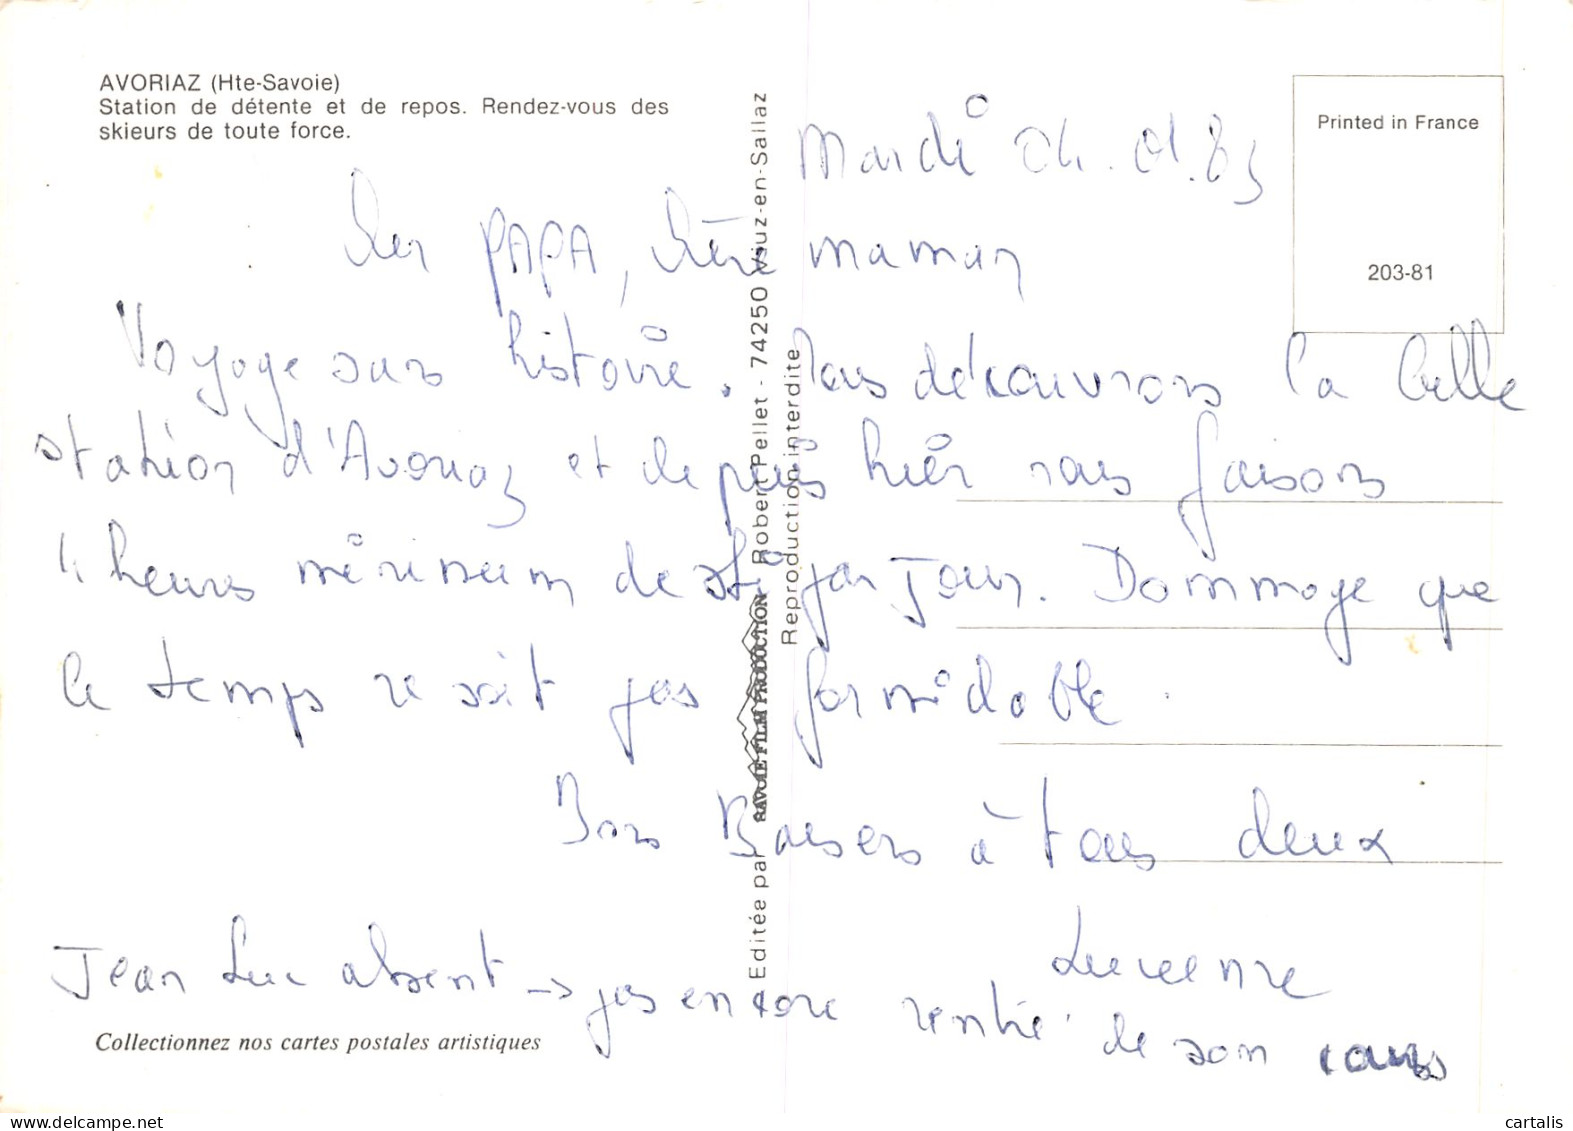 AVORIAZ (Hte-Savoie)
Station de détente et de repos. Rendez-vous des
skieurs de toute force.
Printed in France
203-81
Mardi 04.01.83
Cher PAPA, chère maman
Voyage sans histoire. Nous découvrons la belle
station d'Avoriaz et depuis hier nous faisons
4 heures minimum de ski par jour. Dommage que
le temps ne soit pas formidable.
Bons Baisers à tous deux
Lucienne
Jean Luc absent -> pas encore rentré de son cours
Collectionnez nos cartes postales artistiques
Editée par SAVOIE FILM PRODUCTION Robert Pellet - 74250 Viuz-en-Sallaz
Reproduction interdite
cartalis